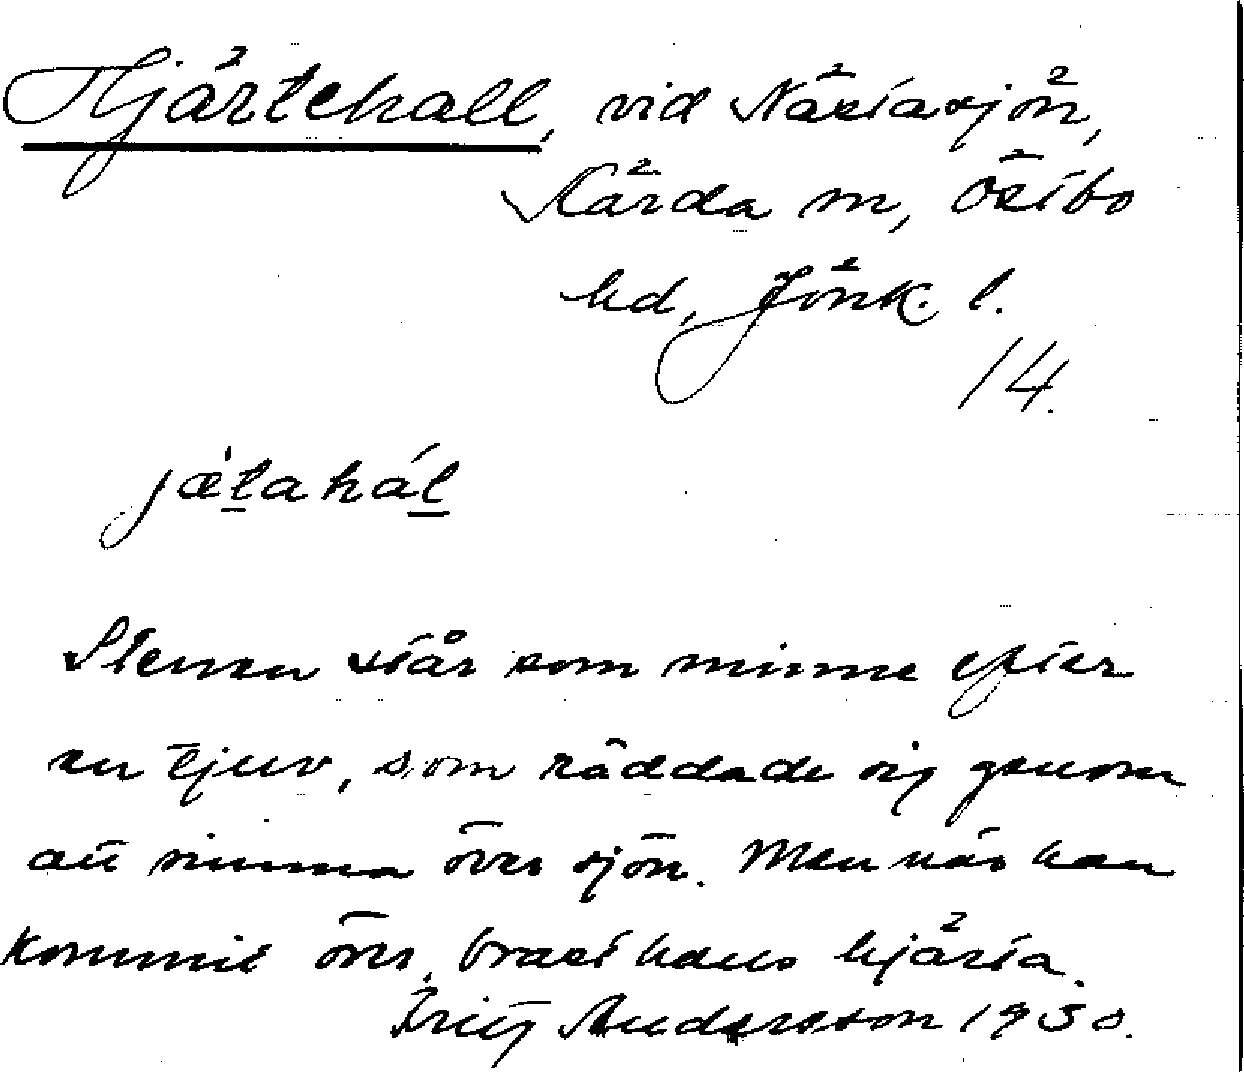 Hjärtehall, vid Nästasjön,
Kärda sn, Östbo
hd, Jönk. l.
14.
jæ̀tahál
Stenen står som minne efter
en tjuv, som räddade sig genom
att simma över sjön. Men när han
kommit över, brast hans hjärta.
Fritz Andersson 1930.